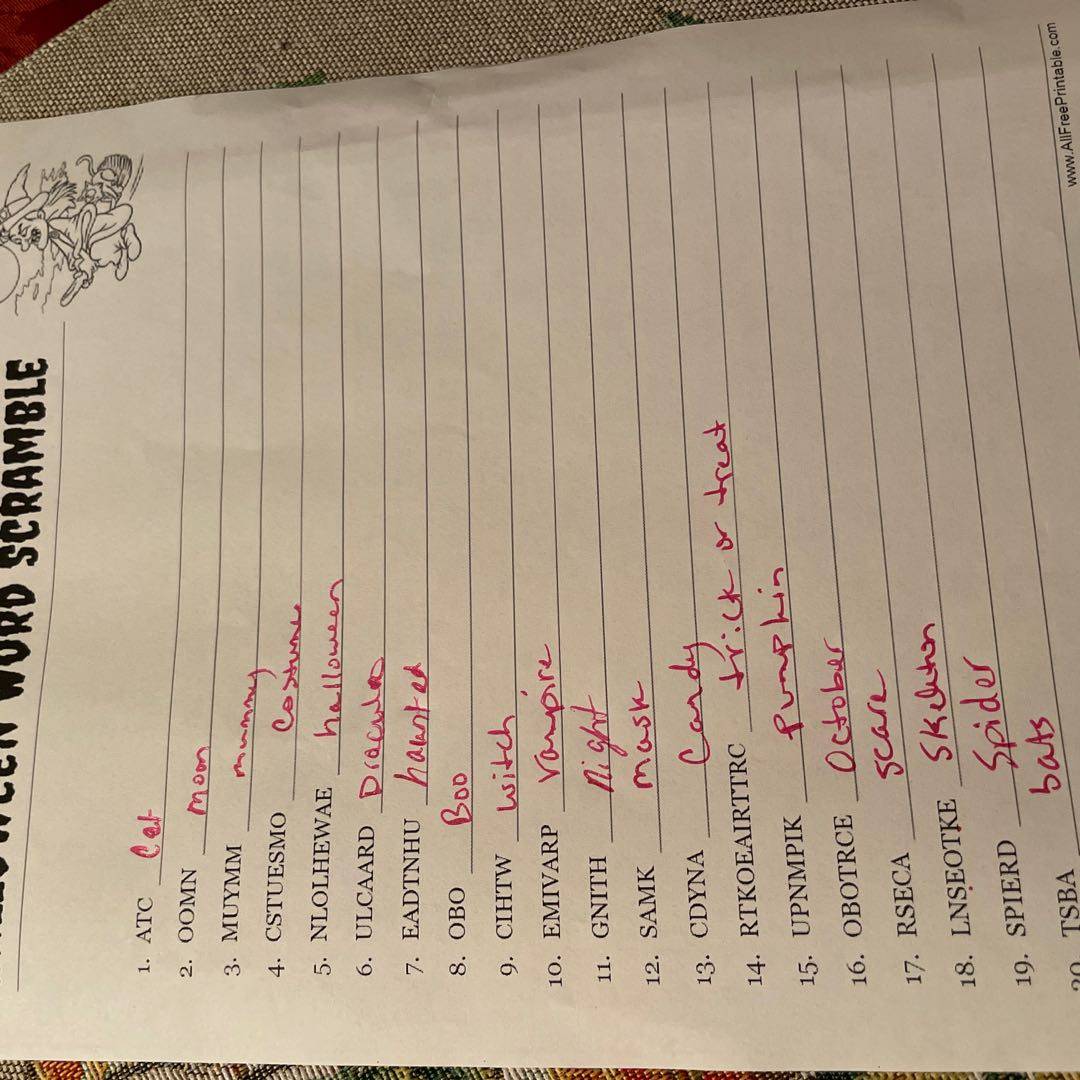 HALLOWEEN WORD SCRAMBLE
1. ATC Cat
2. OOMN moon
3. MUYMM mummy
4. CSTUESMO Costume
5. NLOLHEWAE halloween
6. ULCAARD Dracula
7. EADTNHU haunted
8. OBO Boo
9. CIHTW witch
10. EMIVARP Vampire
11. GNITH Night
12. SAMK mask
13. CDYNA Candy
14. RTKOEAIRTTRC trick or treat
15. UPNMPIK Pumpkin
16. OBOTRCE October
17. RSECA scare
18. LNSEOTKE Skeleton
19. SPIERD Spider
20. TSBA bats
www.AllFreePrintable.com